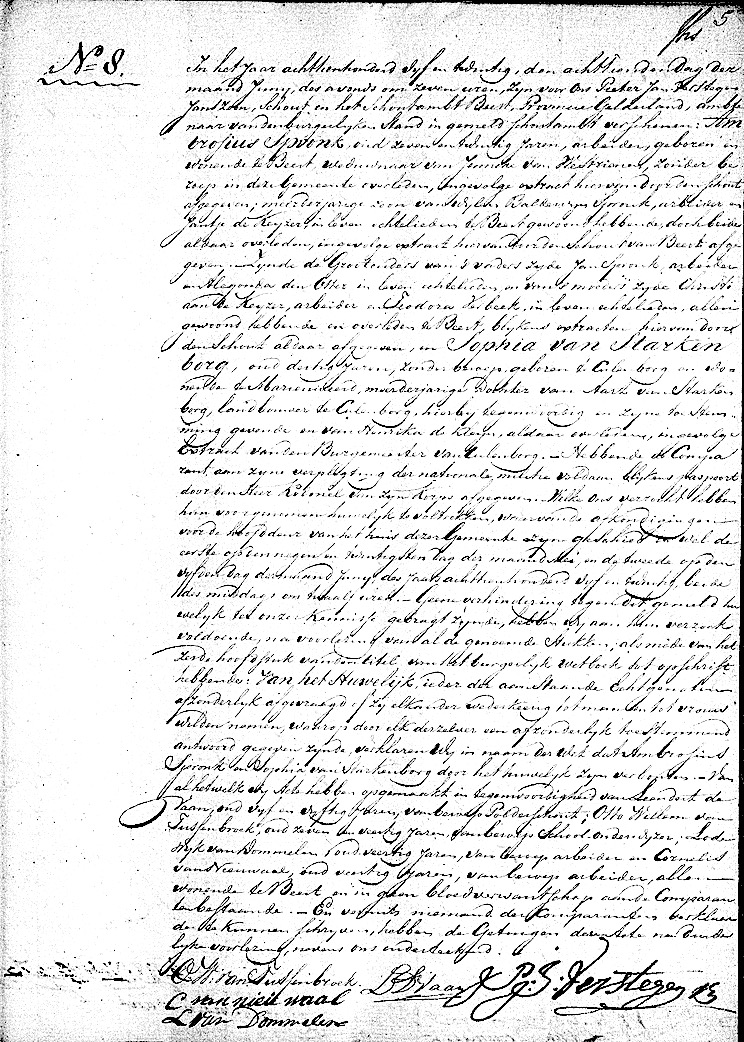 5
No 8.
In het Jaar achttienhonderd Vyf en twintig, den achttienden Dag der
maand Juny, des avonds om zeven uren, zyn voor Ons Pieter Jan Verstegen
Janszoon, Schout in het Schoutambt Beest, Provincie Gelderland, ambte-
naar van den burgerlyken Stand in gemeld Schoutambt verschenen: Am
brosius Spronk, oud zeven en twintig Jaren, arbeider, geboren en
wonende te Beest, weduwnaar van Jenneke van zonder be
roep in deze Gemeente overleden, ingevolge extract hiervan door den Schout
afgegeven, meerderjarige zoon van wylen Spronk, arbeider en
Jantje de Keyzer, in leven echtelieden te Beest gewoond hebbende, doch beide
aldaar overleden, ingevolge extract hiervan door den Schout van Beest afge
geven, Zynde de Grootouders van 's vaders zyde Jan Spronk, arbeider
en den Otter in leven echtelieden, en van 's moeders zyde Christi
aan de Keyzer, arbeider en Teodora Verbeek, in leven echtelieden, allen
gewoond hebbende en overleden te Beest, blykens extracten hiervan door
den Schout aldaar afgegeven, en Sophia van Starken
borg, oud dertig Jaren, zonder beroep, geboren te Culenborg en wo-
nende te Marienwaerd, meerderjarige Dochter van Aart van Starken
borg, landbouwer te Culenborg, hierby tegenwoordig en zyne toestem-
ming gevende en van Hendrika de Kleyn, aldaar overleden, ingevolge
Extract van den Burgemeester van Culenborg. Hebbende de Compa
rant, aan zyne verpligting der nationale militie voldaan blykens paspoort
door den Heer Kolonel van zyn Korps afgegeven. Welke Ons verzocht hebben
hun voorgenomen huwelyk te voltrekken, waarvan de afkondigingen
voor de hoofddeur van het huis dezer Gemeente zyn geschied en wel de
eerste op den negen en twintigsten dag der maand Mei, en de tweede op den
vyfden Dag der maand Juny des Jaars achttienhonderd Vyf en twintig, beide
des middags om twaalf uren. Geene verhindering tegen dit gemeld hu
welyk tot onze Kennisse gebragt zynde, hebben Wy, aan hun verzoek
voldoende, na voorlezing van al de genoemde Stukken, als mede van het
zesde hoofdstuk van den titel van het burgerlyk wetboek tot opschrift
hebbende: Van het Huwelyk, ieder der aanstaande Echtgenooten
afzonderlyk afgevraagd of zy elkander wederkeerig tot man en tot vrouw
wilden nemen, waarop door elk derzelver een afzonderlyk toestemmend
antwoord gegeven zynde, verklaren Wy in naam der Wet dat Ambrosius
Spronk en Sophia van Starkenborg door het huwelyk zyn verbonden. Van
al hetwelk wy Acte hebben opgemaakt in tegenwoordigheid van Leendert de
Vaan, oud Vyf en vyftig Jaren, van beroep Polderschout, Otto Willem van
Tussenbroek, oud zeven en veertig Jaren, van beroep School onderwyzer, Lode
wyk van Dommelen, oud veertig Jaren, van beroep arbeider en Cornelis
van Nieuwaal, oud veertig Jaren, van beroep arbeider, allen
wonende te Beest en in geen bloedverwantschap aan de Comparan
ten bestaande. En vermits niemand der Comparanten verklaar
de te kunnen schryven, hebben de Getuigen deze Acte na duide
lyke voorlezing, nevens ons onderteekend.
O. W. van Tussenbroek L D Vaan P: J: Verstegen
C van nieu waal
L van Dommelen